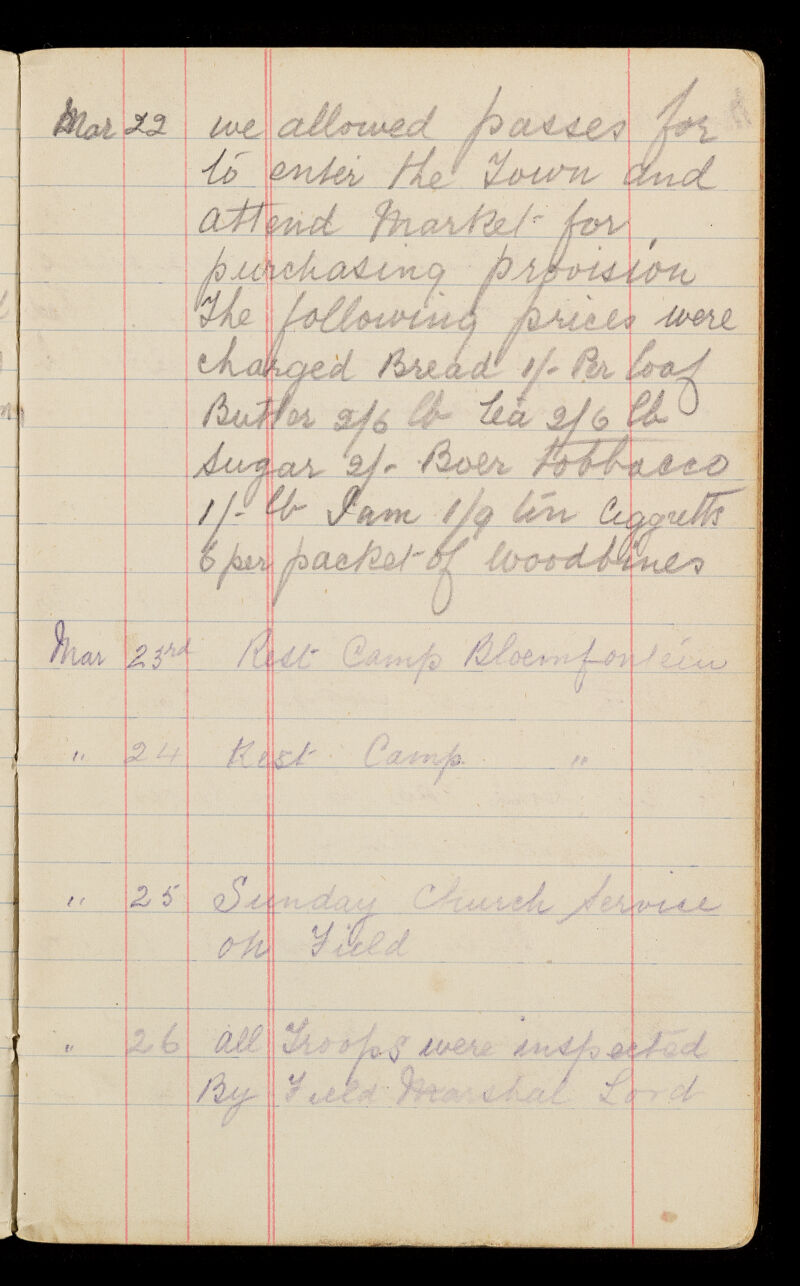 Mar 22 we allowed passes for
to enter the Town and
attend Market for
purchasing provision
The following prices were
charged Bread 1/- Per loaf
Butter 2/6 lb tea 2/6 lb
Sugar 2/- Boer tobbacco
1/- lb Jam 1/9 tin Ciggretts
6 per packet of woodbines
Mar 23rd Rest Camp Bloemfontein
" 24 Rest Camp "
" 25 Sunday Church Service
on Field
" 26 all Troops were inspected
By Field Marshal Lord